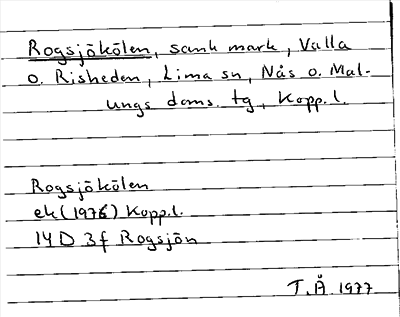 Rogsjökölen, sank mark, Valla
o. Risheden, Lima sn, Nås o. Mal-
ungs doms. tg, Kopp. l.
Rogsjökölen
ek (1976) Kopp.l.
14 D 3f Rogsjön
T.Å 1977